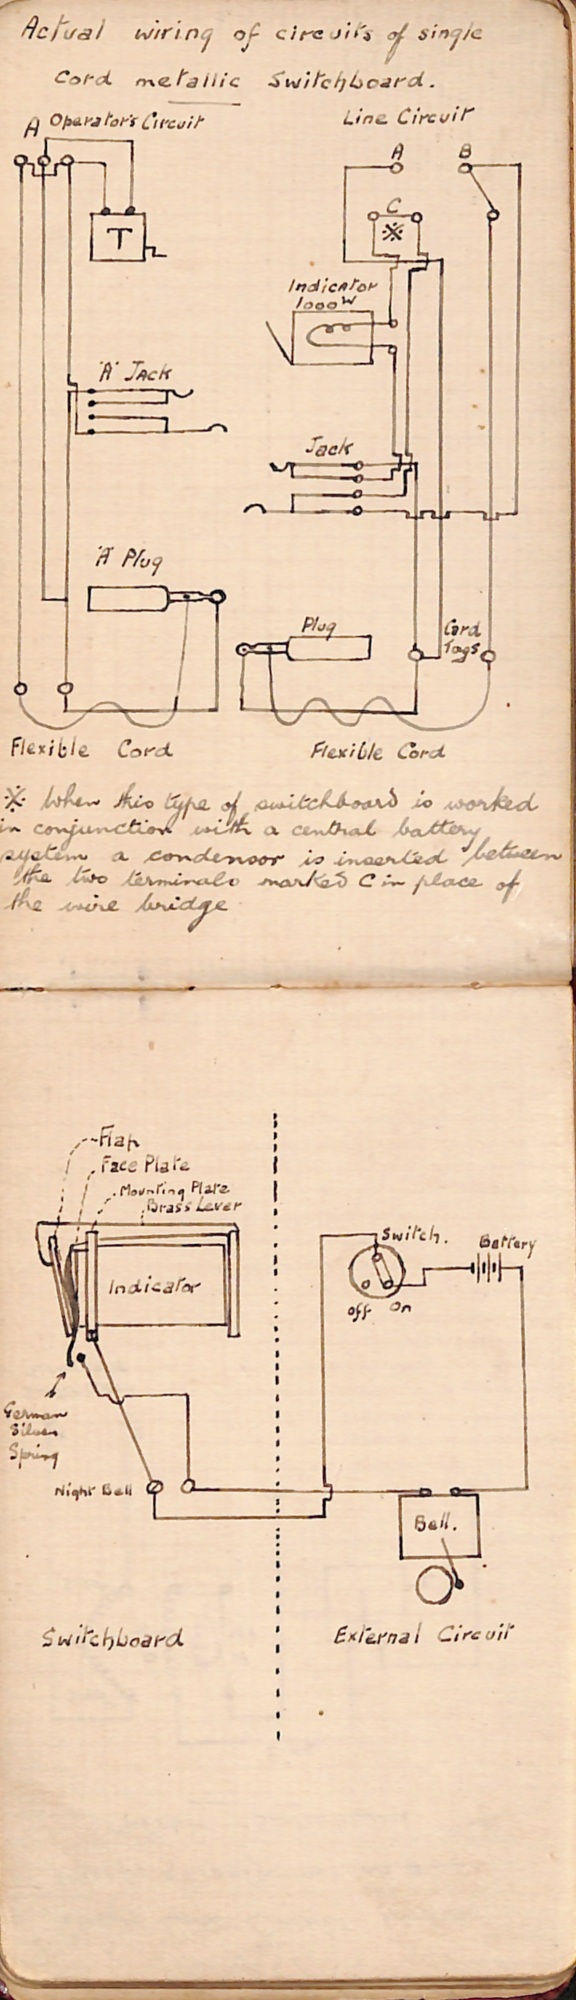 Actual wiring of circuits of single
Cord metallic Switchboard.
A Operator's Circuit
Line Circuit
A B
C
※
T
Indicator
1000 W
'A' Jack
Jack
'A' Plug
Plug
Cord
Tags
Flexible Cord
Flexible Cord
※ When this type of switchboard is worked
in conjunction with a central battery
system a condensor is inserted between
the two terminals marked C in place of
the wire bridge
Flap
Face Plate
Mounting Plate
Brass Lever
Indicator
Switch.
Battery
off On
German
Silver
Spring
Night Bell
Bell.
Switchboard
External Circuit